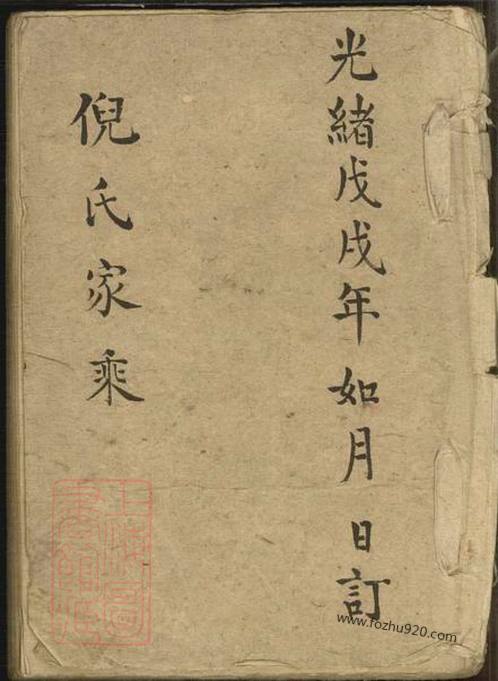 光緒戊戌年如月 日訂
倪氏家乘
上海圖書館藏
www.fozhu920.com